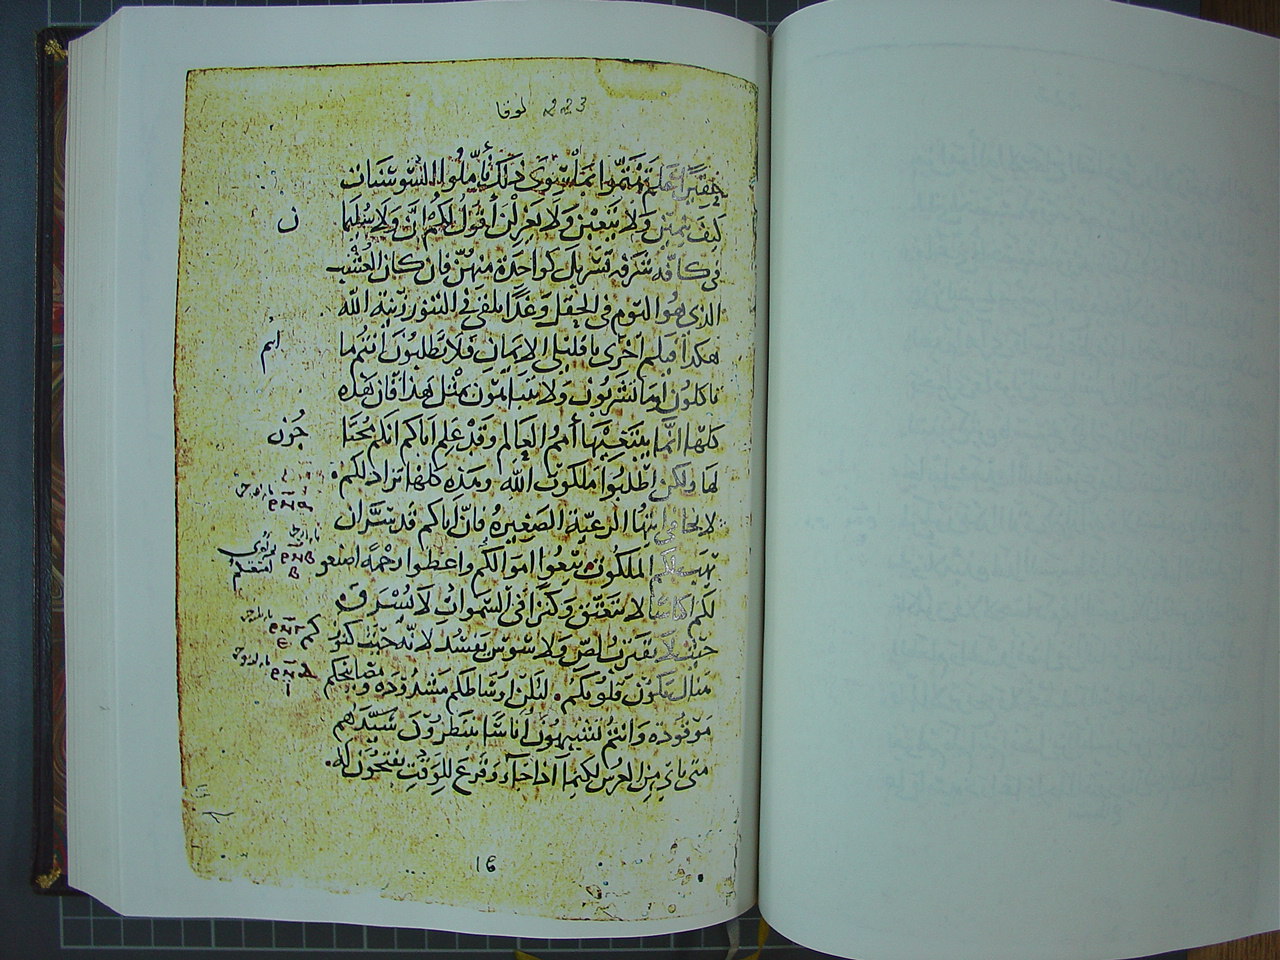 لوقا 223
حقيرًا فلم تهتموا بما سوى ذلك تأمّلوا السّوسنات
كيف ينمين ولا يتعبن ولا يغزلن أقول لكم ان ولا سليما
ن
في كافه شرفه تسربل كواحدة منهنّ فان كان العُشب
الذي هو اليوم في الحقل وغدًا يلقى في التنور زينة الله
هكذا فبلم أحرى يا قليلي الايمان فلا تطلبون أنتم ما
تاكلون او ما تشربون ولا تتباهون بمثل هذا فان هذه
كلها انّما يبتغيها أمم العالم وقد علم اباكم انكم محتا
جُون
لها ولكن اطلبوا ملكوت الله وهذه كلها تزاد لكم
لا تخافوا ايتها الرعيّة الصغيره فانّ اباكم قد سرّ ان
يهب لكم الملكوت بيعوا اموالكم واعطوا رحمة اصنعو
لكم اكياسًا لا تتعتق وكنزًا في السّموات لا يُسرق
حيث لا يقترب لصّ ولا سوس يفسد لانّه حيث كنوز كم
هناك تكون قلوبكم لتكن اوساطكم مشدُودَه ومصابيحكم
موقُودَه وانتم تشبهون أناسًا ينتظرون سَيّدَهم
متى ياتي من العرس لكيما اذا جآء وقرع للوقت يفتحون له
16